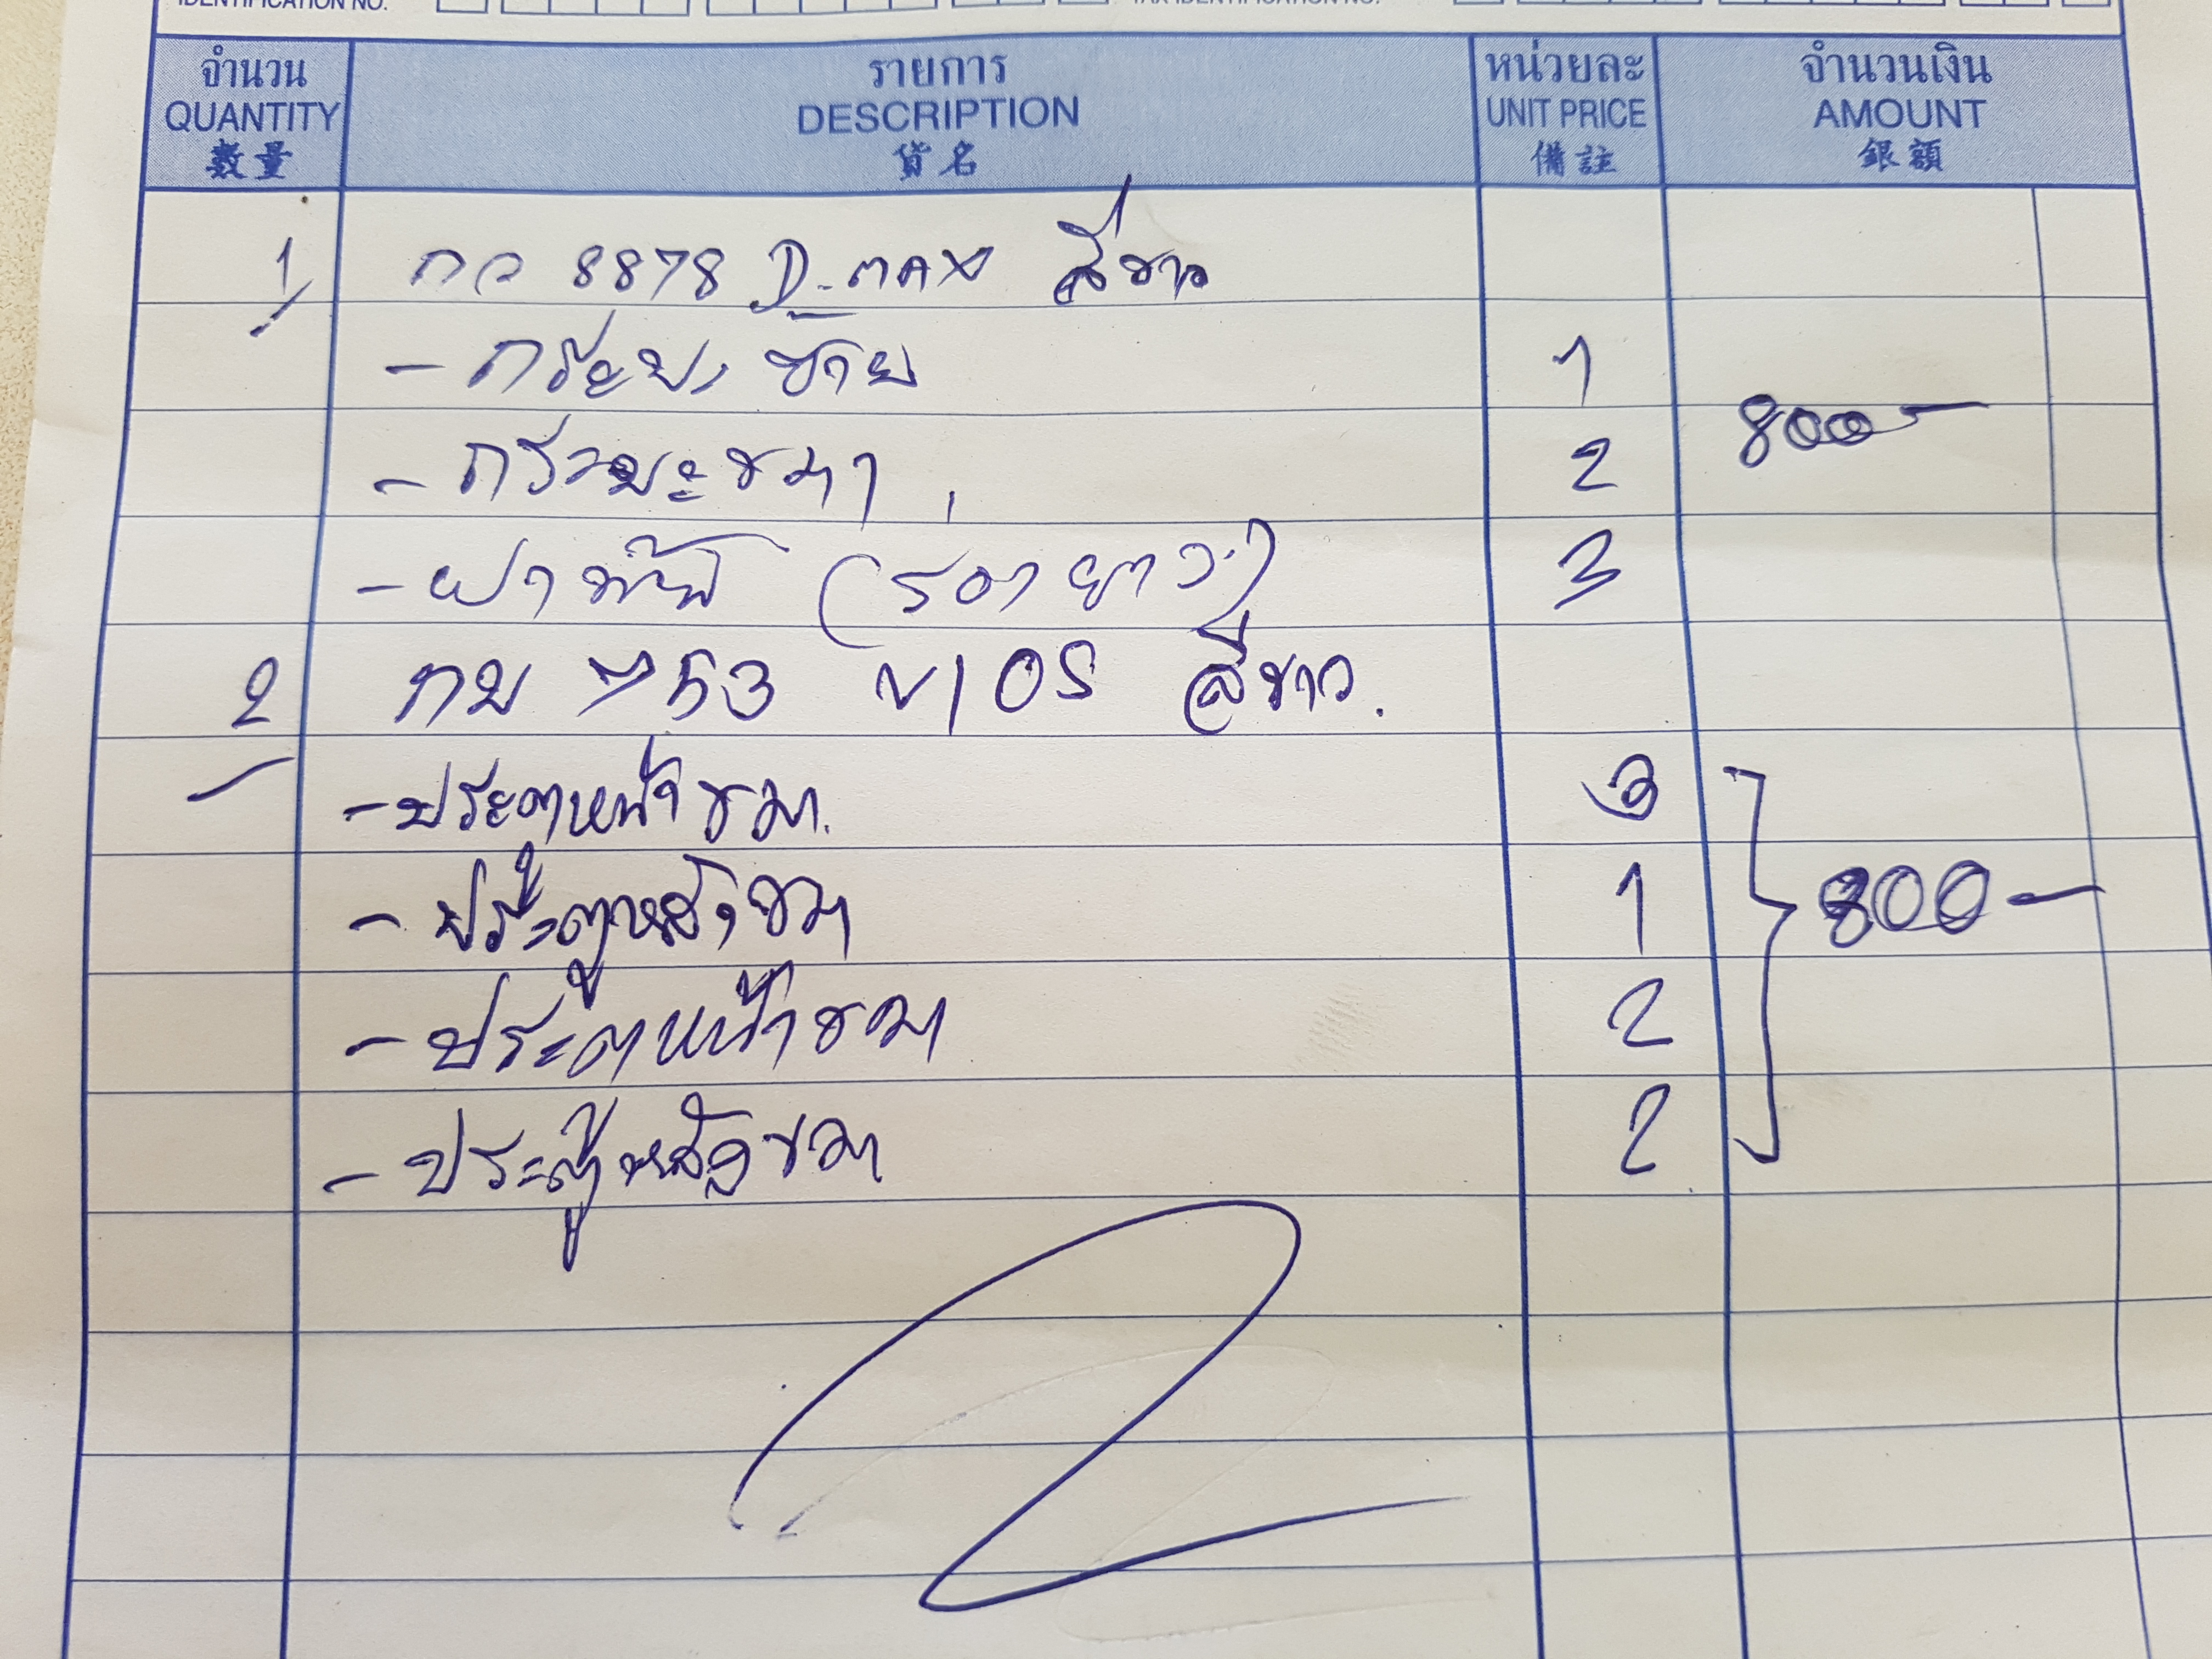 IDENTIFICATION NO. TAX IDENTIFICATION NO.
จำนวน รายการ หน่วยละ จำนวนเงิน
QUANTITY DESCRIPTION UNIT PRICE AMOUNT
數量 貨名 備註 銀額
1 กว 8878 D-MAX สีขาว
- กระบะ ซ้าย 1
800-
- กระบะขวา 2
- ฝาท้าย (รอยยาว) 3
2 กบ 753 VIOS สีขาว.
- ประตูหน้าขวา. 3
- ประตูหลังขวา 1 800-
- ประตหน้าขวา 2
- ประตูหลังขวา 2